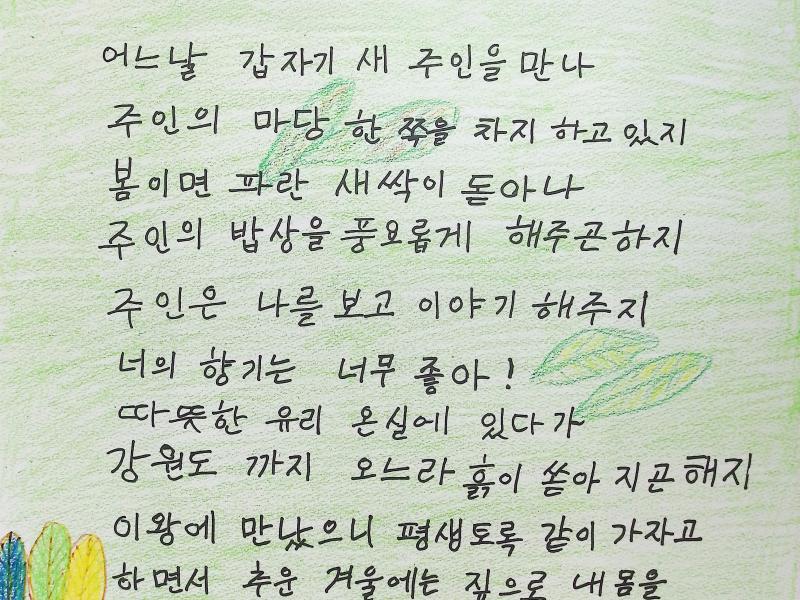 어느날 갑자기 새 주인을 만나
주인의 마당 한 쪽을 차지 하고 있지
봄이면 파란 새싹이 돋아나
주인의 밥상을 풍요롭게 해주곤하지
주인은 나를 보고 이야기 해주지
너의 향기는 너무 좋아!
따뜻한 유리 온실에 있다가
강원도 까지 오느라 흙이 쏟아 지곤 해지
이왕에 만났으니 평생토록 같이 가자고
하면서 추운 겨울에는 짚으로 내 몸을